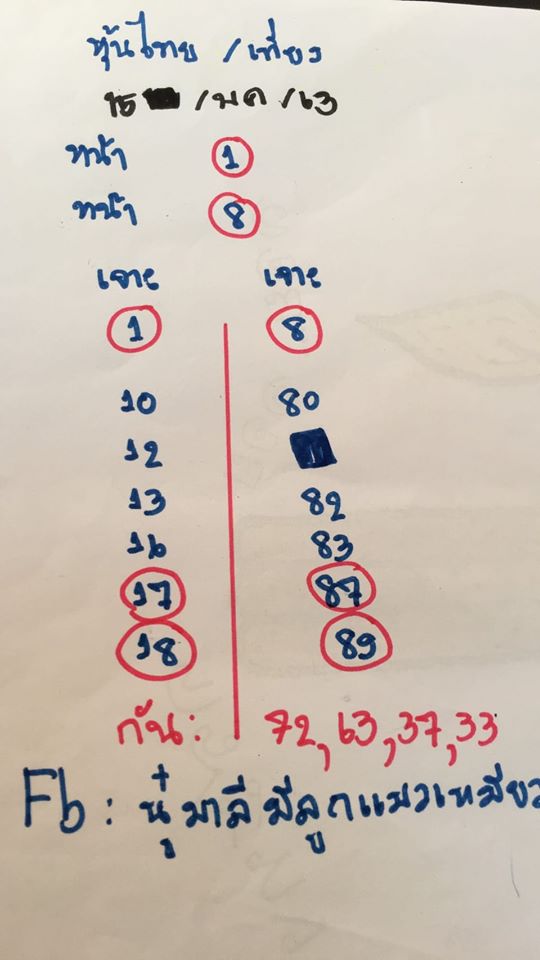 หุ้นไทย /เที่ยง
15 /มค /63
หน้า 1
หน้า 8
เจาะ เจาะ
1 8
10 80
12
13 82
16 83
17 87
18 89
กัน: 72,63,37,33
Fb: นุ๋มาลีมีลูกแมวเหมียว